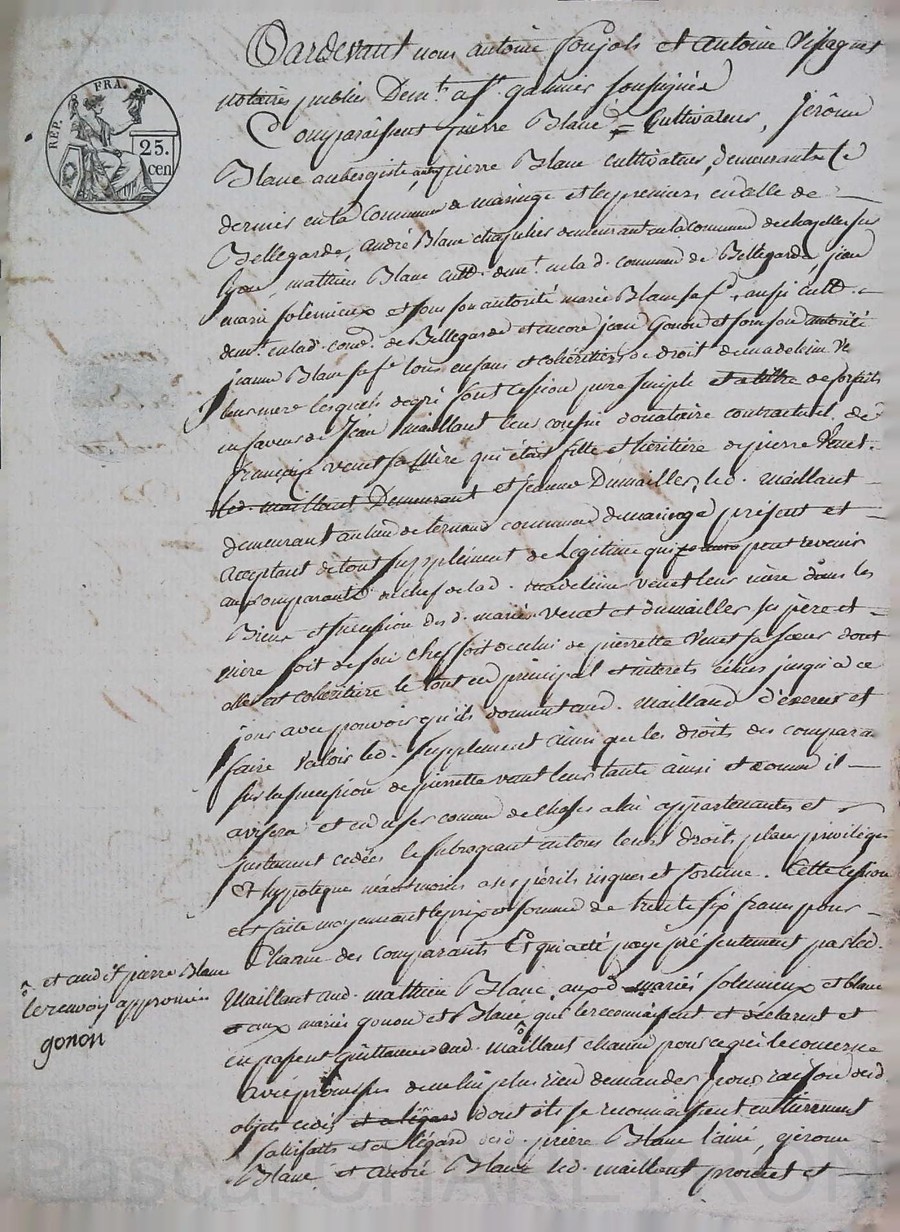 Pardevant nous antoine Poujols et antoine Vissaguet
notaires publics Demt. a st. galmier soussignés
Comparaissent pierre Blanc Cultivateur, Jerôme
Blanc aubergiste, autre pierre Blanc cultivateur, demeurants ce
dernier en la Commune de maringe et les premiers en celle de
Bellegarde, André Blanc chapelier demeurant en la commune de chazelles sur
lyon, mathieu Blanc cult. demt. en la d. commune de Bellegarde, jean
marie solemieux et sous son autorité marie Blanc sa fe. aussi cult.
demt. en lad. comm. de Bellegarde et encore jean Gonon et sous son autorité
jeanne Blanc sa fe. tous enfans et cohéritiers de droit de madeleine Ve
leur mere lesquels de gré font cession pure simple et a titre de forfaits
en faveur de Jean maillant leur cousin donataire contractuel de
françoise venet sa mère qui était fille et héritière de pierre Venet
led. maillant Demeurant et Jeanne Dumailler, led. maillant
demeurant au lieu de commune de maringe présent et
acceptant de tout supplément de légitime qui peut revenir
aux comparants du chef de lad. madeleine venet leur mère dans les
Biens et succession desd. mariés Venet et dumailler ses père et
mère soit de son chef soit de celui de pierrette Venet sa sœur dont
elle est cohéritière le tout en principal et interets échus jusqu'à ce
jour avec pouvoir qu'ils donnent aud. mailland d'exercer et
faire valoir led. supplement ainsi que les droits des compara
sur la succession de pierrette venet leur tante ainsi et comme il
avisera et en user comme de choses a lui appartenantes et
justement cedées le subrogeant en tous leurs droits places privilèges
et hypoteque néantmoins a ses périls risques et fortune. Cette cession
est faite moyennant le prix et somme de trente six francs pour
Chacun des comparants Ce qui a été payé présentement par led.
Maillant aud. mathieu Blanc, auxd. mariés solemieux et blanc
et aux mariés gonon et Blanc, qui le reconnaissent et déclarent et
en passent quittance aud. maillant chacun pour ce qui le concerne
avec promesse de ne lui plus rien demander pour raison desd.
objets cédés et a l'égard dont ils se reconnaissent entierement
satisfaits et a l'égard desd. pierre Blanc l'ainé, gérome
Blanc et andré Blanc led. maillant promet et
et aud. st pierre Blanc
le renvoy approuvé
gonon
REP. FRA.
25.
cen
Pascal CHARLEYRON